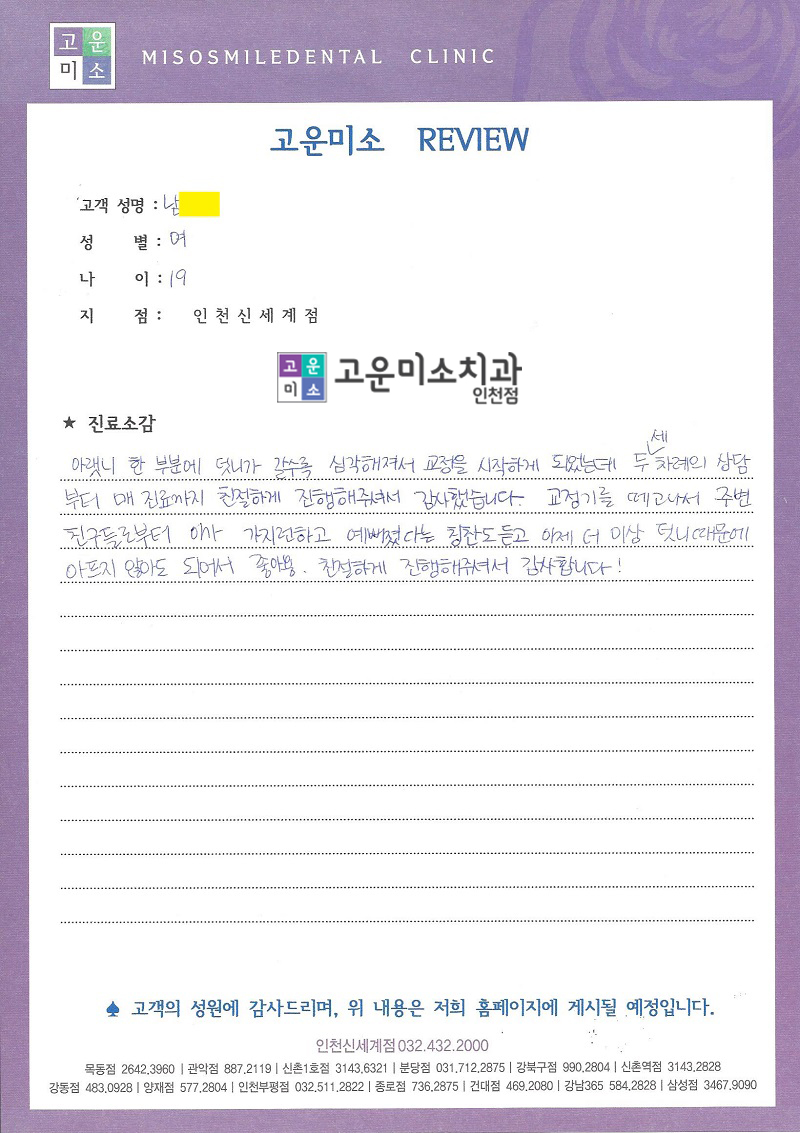 고운
미소
MISOSMILEDENTAL CLINIC
고운미소 REVIEW
고객 성명 : 남
성 별 : 여
나 이 : 19
지 점 : 인천신세계점
고운
미소
고운미소치과
인천점
★ 진료소감
세
아랫니 한 부분에 덧니가 갈수록 심각해져서 교정을 시작하게 되었는데 두 차례의 상담
부터 매 진료까지 친절하게 진행해주셔서 감사했습니다. 교정기를 떼고나서 주변
친구들로부터 이가 가지런하고 예뻐졌다는 칭찬도듣고 이제 더 이상 덧니때문에
아프지 않아도 되어서 좋아용. 친절하게 진행해주셔서 감사합니다!
♠ 고객의 성원에 감사드리며, 위 내용은 저희 홈페이지에 게시될 예정입니다.
인천신세계점 032.432.2000
목동점 2642,3960 | 관악점 887,2119 | 신촌1호점 3143,6321 | 분당점 031,712,2875 | 강북구점 990,2804 | 신촌역점 3143,2828
강동점 483,0928 | 양재점 577,2804 | 인천부평점 032,511,2822 | 종로점 736,2875 | 건대점 469,2080 | 강남365 584,2828 | 삼성점 3467,9090